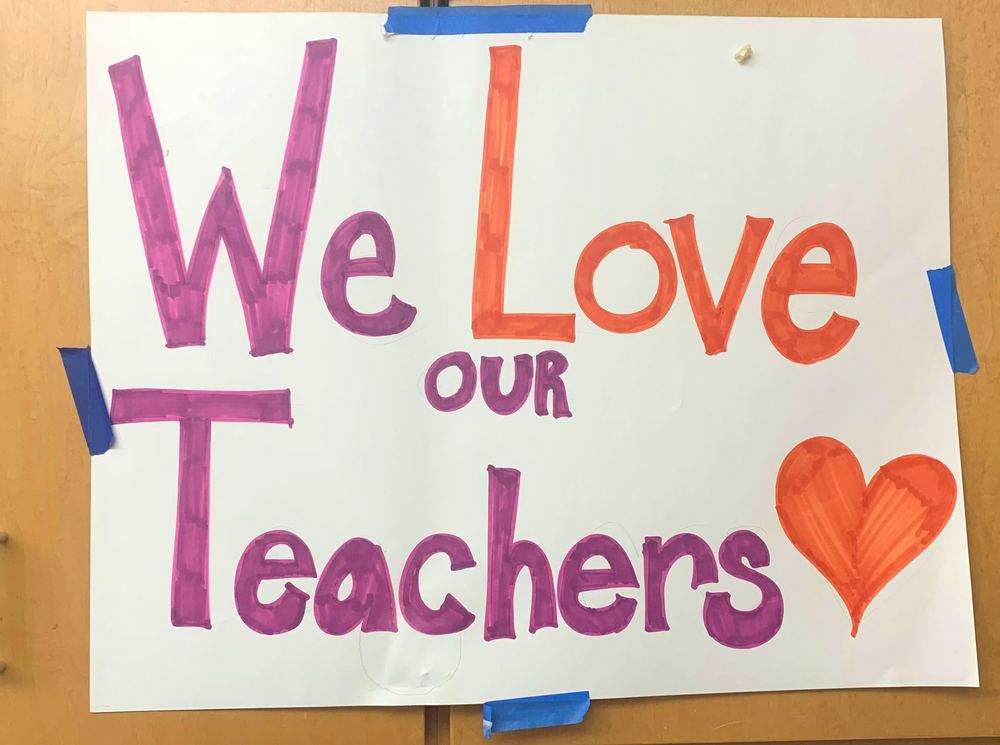 We Love
OUR
Teachers